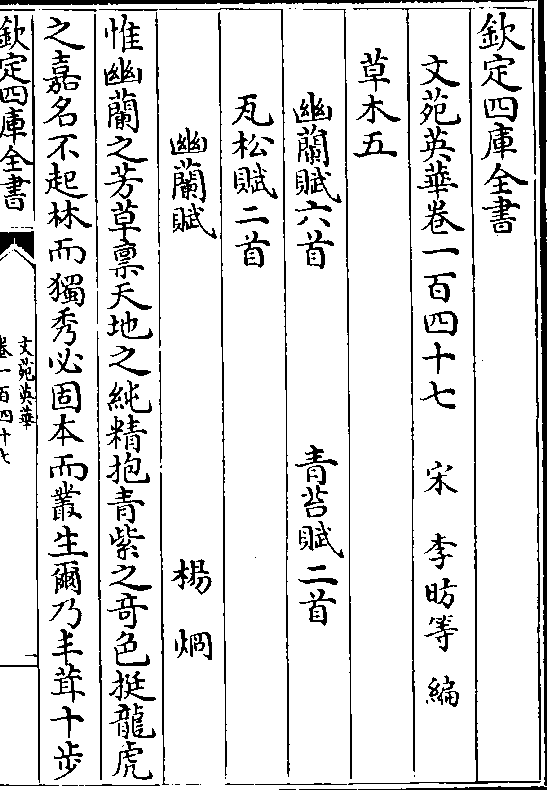 欽定四庫全書
文苑英華卷一百四十七 宋 李昉等 編
草木五
幽蘭賦六首 青苔賦二首
瓦松賦二首
幽蘭賦 楊炯
惟幽蘭之芳草禀天地之純精抱青紫之竒色挺龍虎
之嘉名不起林而獨秀必固本而叢生爾乃丰茸十步
欽定四庫全書
文苑英華
卷一百四十七
一